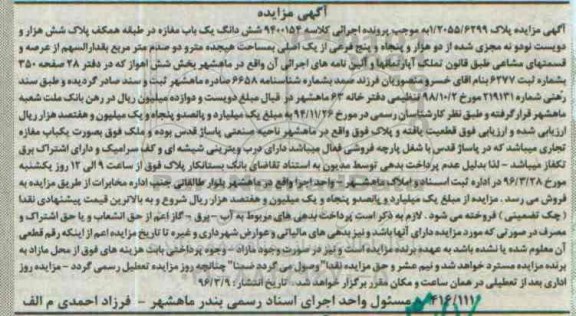 آگهی مزایده
آگهی مزایده پلاک ۱/۲۰۵۵/۶۲۹۹به موجب پرونده اجرائی کلاسه ۹۴۰۰۱۵۳ شش دانگ یک باب مغازه در طبقه همکف پلاک شش هزار و
دویست نودو نه مجزی شده از دو هزار و پنجاه و پنج فرعی از یک اصلی بمساحت هیجده مترو دو صدم متر مربع بقدارالسهم از عرصه و
قسمتهای مشاعی طبق قانون تملک آپارتمانها و آئین نامه های اجرائی آن واقع در ماهشهر بخش شش اهواز که در دفتر ۲۸ صفحه ۳۵۰
بشماره ثبت ۶۲۷۷ بنام اقای خسرو منصوریان فرزند صمد بشماره شناسنامه ۶۶۵۸ صادره ماهشهر ثبت و سند صادر گردیده و طبق سند
رهنی شماره ۲۱۹۱۳۱ مورخ ۹۸/۱۰/۲ تنظیمی دفتر خانه ۶۳ ماهشهر در قبال مبلغ دویست و دوازده میلیون ریال در رهن بانک ملت شعبه
ماهشهر قرار گرفته و طبق نظر کارشناسان رسمی در مورخ ۹۴/۱۱/۲۶ به مبلغ یک میلیارد و پانصدو پنجاه و یک میلیون و هفتصد هزار ریال
ارزیابی شده و ارزیابی فوق قطعیت یافته و پلاک فوق واقع در ماهشهر ناحیه صنعتی پاساژ قدس بوده و ملک فوق بصورت یکباب مغازه
تجاری میباشد که در پاساژ قدس با شغل پارچه فروشی فعال میباشد دارای درب ویترینی شیشه ای و کف سرامیک و دارای اشتراک برق
تکفاز میباشد – لذا بدلیل عدم پرداخت بدهی توسط مدیون به استناد تقاضای بانک بستانکار پلاک فوق از ساعت ۹ الی ۱۲ روز یکشنبه
مورخ ۹۶/۳/۲۸ در اداره ثبت اسناد و املاک ماهشهر – واحد اجرا واقع در ماهشهر بلوار طالقانی جنب اداره مخابرات از طریق مزایده به
فروش می رسد . مزایده از مبلغ یک میلیارد و پانصدو پنجاه و یک میلیون و هفتصد هزار ریال شروع و به بالاترین قیمت پیشنهادی نقدا
( چک تضمینی ) فروخته می شود . لازم به ذکر است پرداخت بدهی های مربوط به آب – برق – گاز اعم از حق انشعاب و یا حق اشتراک و
مصرف در صورتی که مورد مزایده دارای آنها باشد و نیز بدهی های مالیاتی و عوارض شهرداری و غیره تا تاریخ مزایده اعم از اینکه رقم قطعی
آن معلوم شده یا نشده باشد به عهده برنده مزایده است و نیز در صورت وجود مازاد – وجوه پرداختی بابت هزینه های فوق از محل مازاد به
برنده مزایده مسترد خواهد شد و نیم عشر و حق مزایده نقدا" وصول می گردد ضمنا" چنانچه روز مزایده تعطیل رسمی گردد – مزایده روز
اداری بعد از تعطیلی در همان ساعت و مکان مقرر برگزار خواهد شد. تاریخ انتشار : ۹۶/۳/۹
۴۱۶/۱۱۱ مسئول واحد اجرای اسناد رسمی بندر ماهشهر – فرزاد احمدی م الف